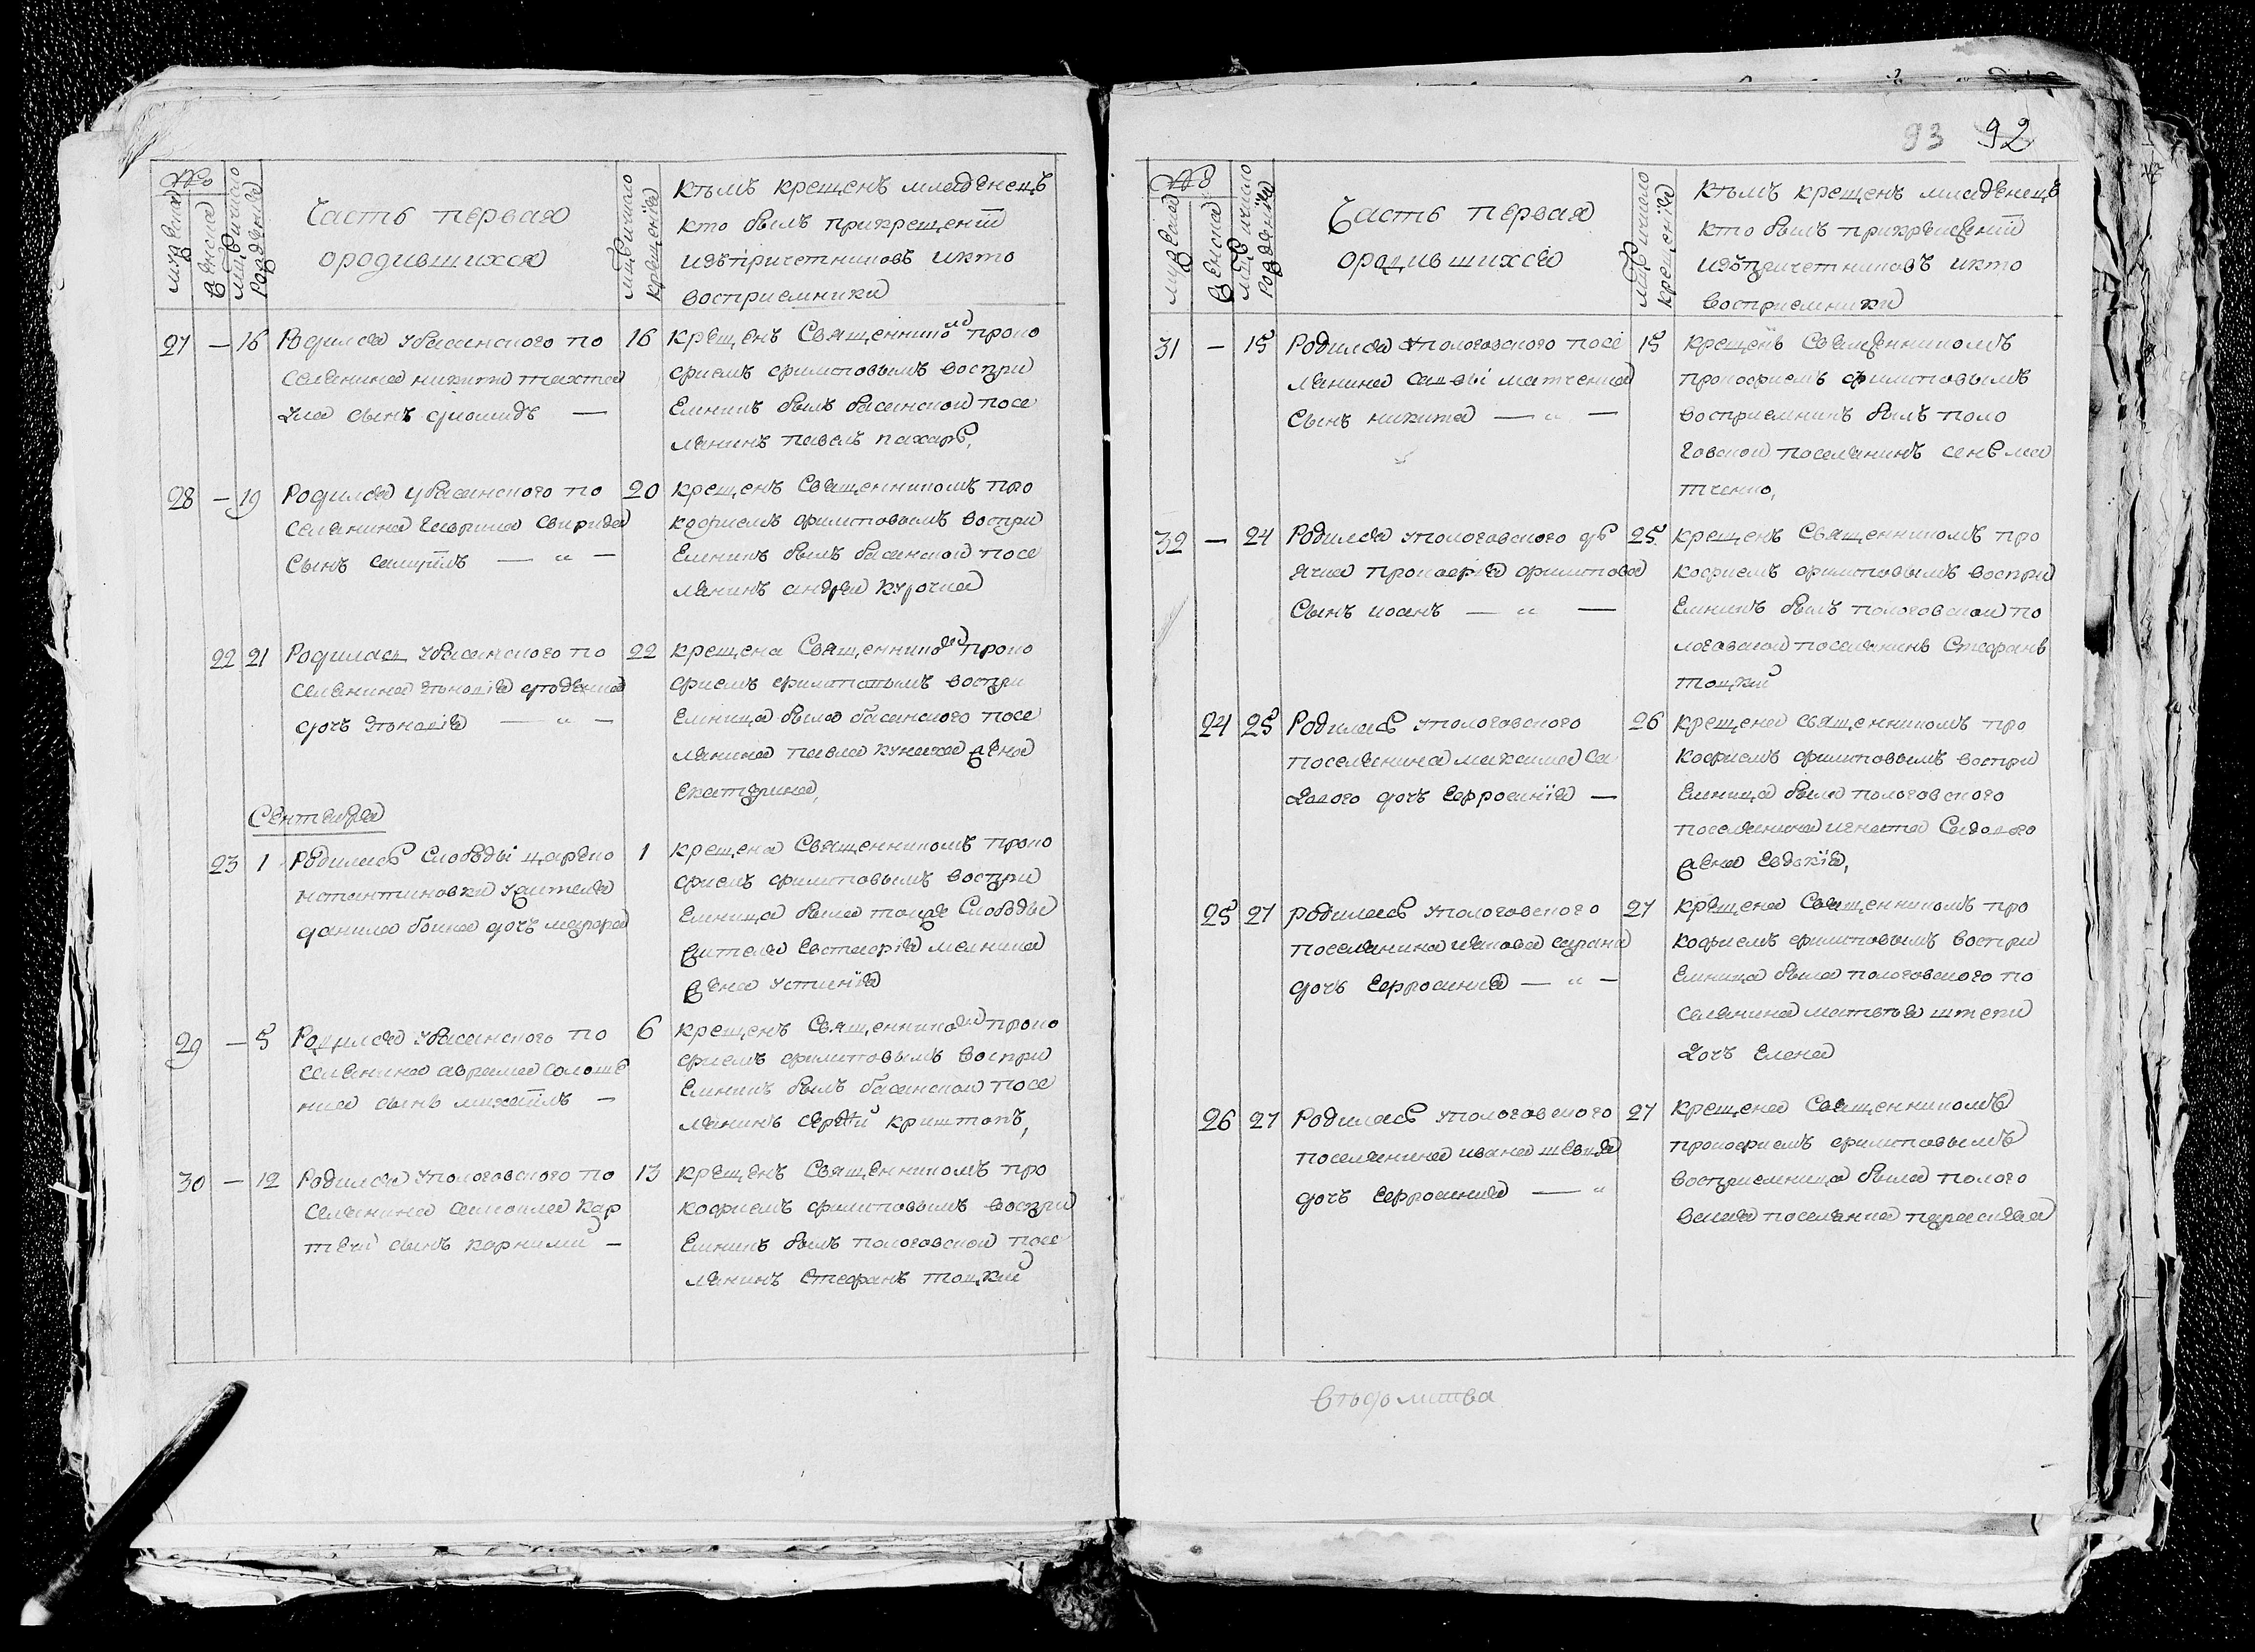 №
мужеска
женска
мцъ и число
рождения
Часть первая
ородившихся
мцъ и число
крещенїя
кѣмъ крещенъ младенецъ
кто былъ прикрещенїи
изъ причетниковъ икто
восприемники
27 — 16 Родился убасанского по
селянина никити тахта
сынъ диомидъ —
16 крещенъ Священнико м проко
фиемъ филиповымъ воспри
емникъ былъ басанской посе
лянинъ павелъ пахарь,
28 — 19 Родился убасанского по
селянина гаврила свирида
Сынъ самуилъ — " —
20 крещенъ Священникомъ про
кофиемъ филиповымъ воспри
емникъ былъ басанской посе
лянинъ андреи курочка
22 21 Родилась убасанского по
селянина
дочъ — " —
22 крещена Священнико м проко
фиемъ филиповымъ воспри
емница была басанского посе
лянина павла кунаха жена
екатерина,
Сентября
23 1 Родилась слободы цареко
нстантиновки жителя
данила бойка дочъ мавра
1 крещена Священникомъ проко
фиемъ филиповымъ воспри
емница была тоцже слободы
жителя Евстафия мелника
жена устинїя
29 — 5 Родился убасанского по
селянина аврама соломе
ника сынъ михаилъ —
6 крещенъ Священнико м проко
фиемъ филиповымъ воспри
емникъ былъ басанской посе
лянинъ сергѣй криштопъ,
30 — 12 Родился упологовского по
селянина самоила кар
течи сынъ корнилий —
13 крещенъ Священникомъ про
кофиемъ филиповымъ воспри
емникъ былъ пологовской посе
лянинъ Стефанъ тоцкий
93 92
№
мужеска
женска
мцъ и число
рожденїя
Часть первая
ородившихся
мцъ и число
крещенїя
кѣмъ крещенъ младенецъ
кто былъ прикрещенїи
изъ причетниковъ икто
восприемники
31 — 15 Родился упологовского посе
лянина савы матченка
Сынъ никита — " —
15 крещенъ Священникомъ
прокофиемъ филиповымъ
восприемникъ былъ поло
говской поселянинъ
тченко,
32 — 24 Родился упологовского дь
ячка прокофия филипова
Сынъ иоанъ — " —
25 крещенъ Священникомъ про
кофиемъ филиповымъ воспри
емникъ былъ пологовской по
логовской поселянинъ Стефанъ
тоцкий
24 25 Родилась упологовского
поселянина максима са
дового дочъ Евфросинїя —
26 крещена священникомъ про
кофиемъ филиповымъ воспри
емница была пологовского
поселянина игната Садового
жена Евдокїя,
25 27 родилась упологовского
поселянина якова
дочъ Евфросиния — " —
27 крещена Священникомъ про
кофиемъ филиповымъ воспри
емница была пологовского по
селянина матвѣя штепи
дочъ Елена
26 27 Родилась упологовского
поселянина ивана швида
дочъ Евфросиния — "
27 крещена Священникомъ
прокофиемъ филиповымъ
восприемница была полого
вская поселянка параскева